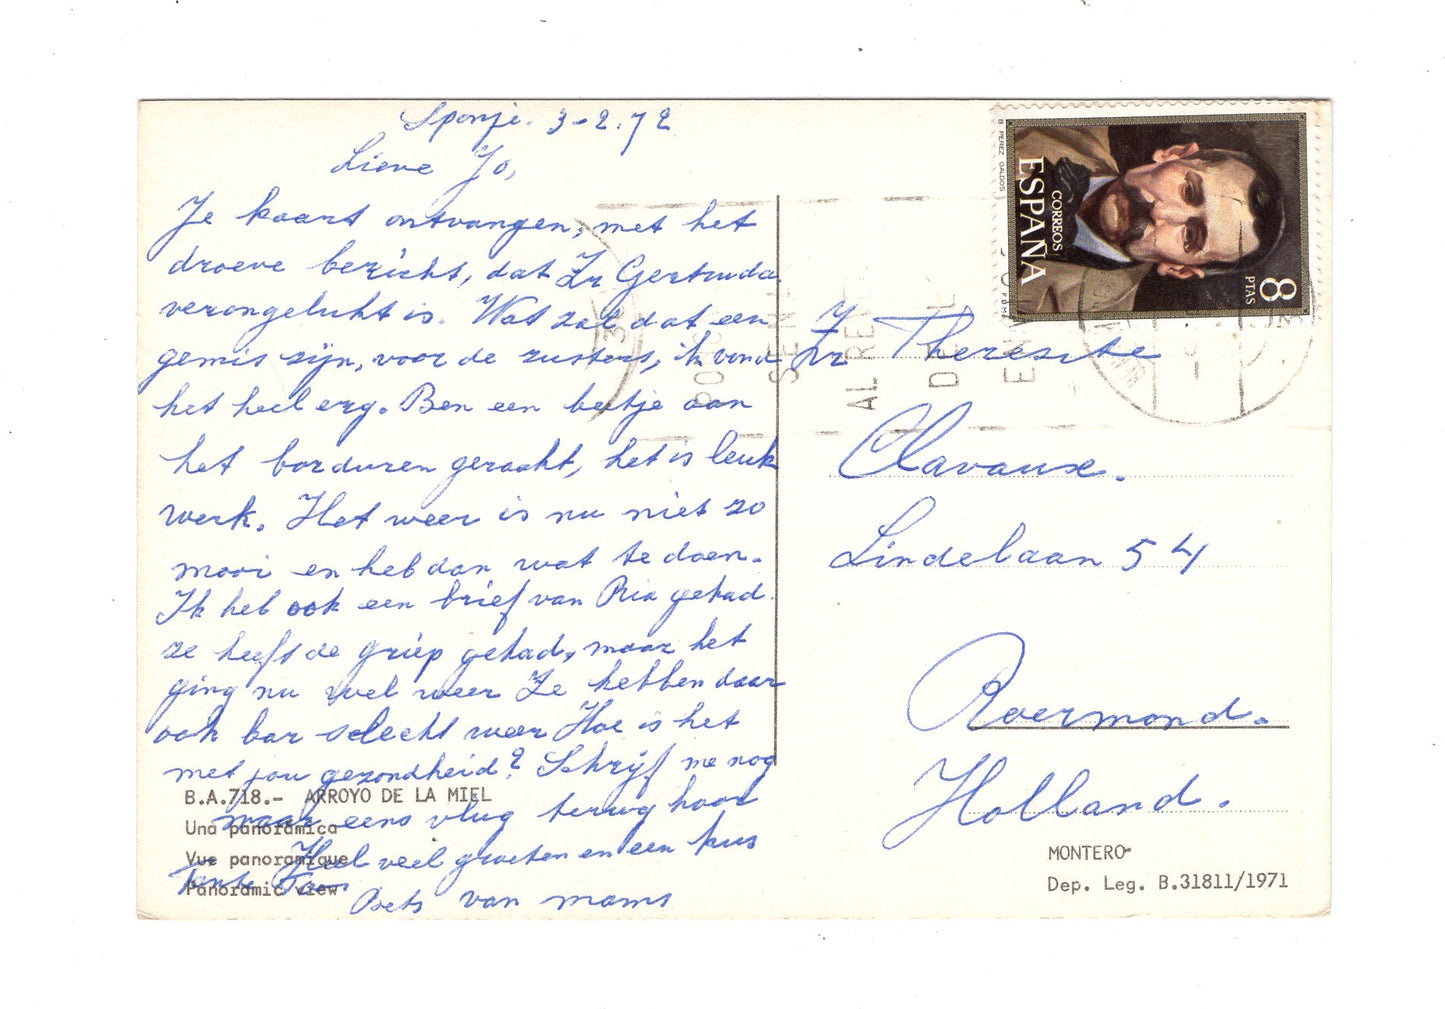 Spanje. 3-2.72
Lieve Jo,
Je kaart ontvangen, met het
droeve bericht, dat Zr Gertruda
verongelukt is. Wat zal dat een
gemis zijn, voor de zusters, ik vond
het heel erg. Ben een beetje aan
het borduren geraakt, het is leuk
werk. Het weer is nu niet zo
mooi en heb dan wat te doen.
Ik heb ook een brief van Ria gehad.
ze heeft de griep gehad, maar het
ging nu wel weer Ze hebben daar
ook bar slecht weer Hoe is het
met jou gezondheid? Schrijf me nog
maar eens vlug terug hoor
Heel veel groeten en een kus
Tante
Bets van mams
B.A.718.- ARROYO DE LA MIEL
Una panorámica
Vue panoramique
Panoramic view
B. PEREZ GALDOS
CORREOS
ESPAÑA
8
PTAS
Zr Theresite
Clavaux.
Lindelaan 54
Roermond.
Holland.
MONTERO
Dep. Leg. B.31811/1971